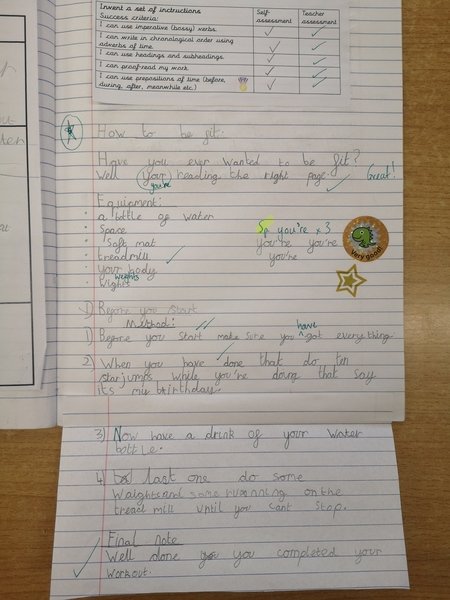 Invent a set of instructions
Success criteria:
Self-assessment
Teacher assessment
I can use imperative (bossy) verbs.
I can write in chronological order using adverbs of time.
I can use headings and subheadings.
I can proof-read my work.
I can use prepositions of time (before, during, after, meanwhile etc.)
How to be fit:
Have you ever wanted to be fit?
Well your reading the right page. Great!
you're
Equipment:
• a bottle of water
• Space
• Soft mat
• treadmill
• your body
• Wights
weights
Sp you're x 3
you're you're
you're
Very good!
1) Before you start
Method:
1) Before you start make sure you have got everything.
2) When you have done that do ten
starjumps while you're doing that say
it's my birthday.
3) Now have a drink of your water
bottle.
4 last one do some
Waights and some running on the
tread mill until you cant stop.
Final note
Well done you completed your
workout.